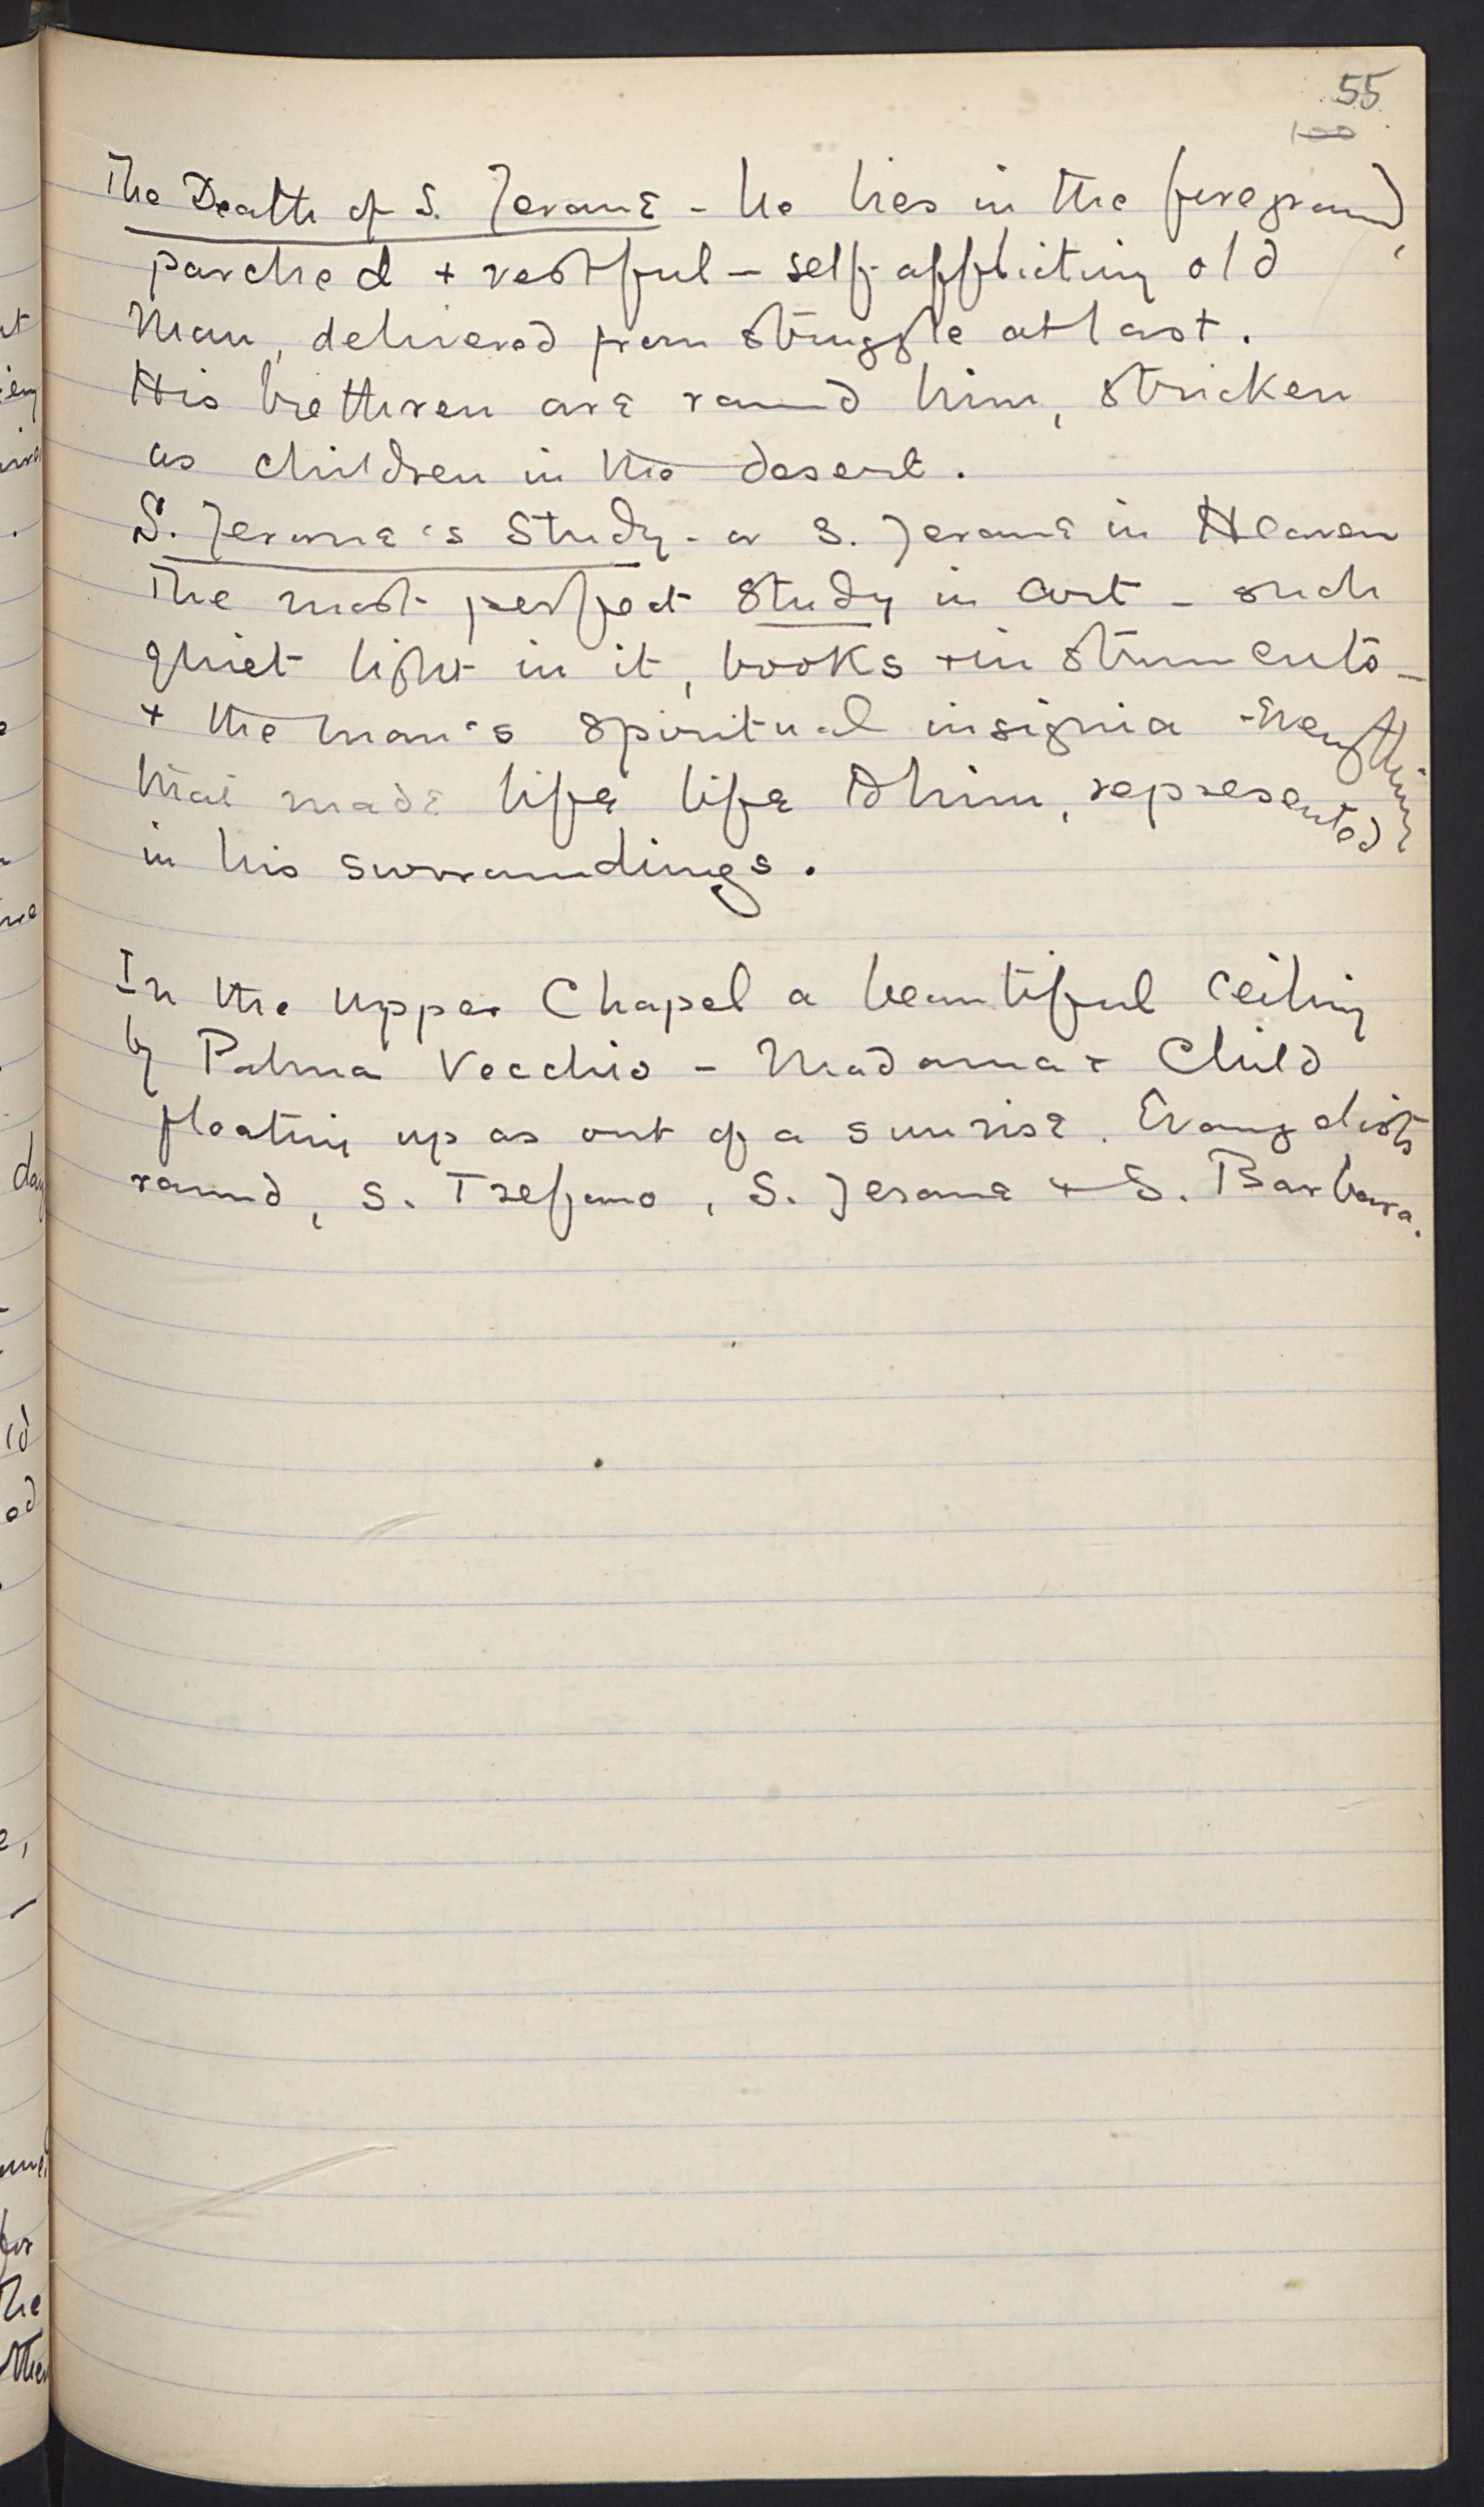 55
100
The Death of S. Jerome - he lies in the foreground,
parched + restful - self-afflicting old
Man, delivered from struggle at last.
His brethren are round him, stricken
as children in the desert.
S. Jerome's Study - or S. Jerome in Heaven
The most perfect Study in Art - such
quiet light in it, books + instruments -
+ the man's spiritual insignia - Everything
that made life life to him, represented
in his surroundings.
In the upper Chapel a beautiful Ceiling
by Palma Vecchio - Madonna + Child
floating up as out of a sunrise. Evangelists
round, S. Trefano, S. Jerome + S. Barbara.